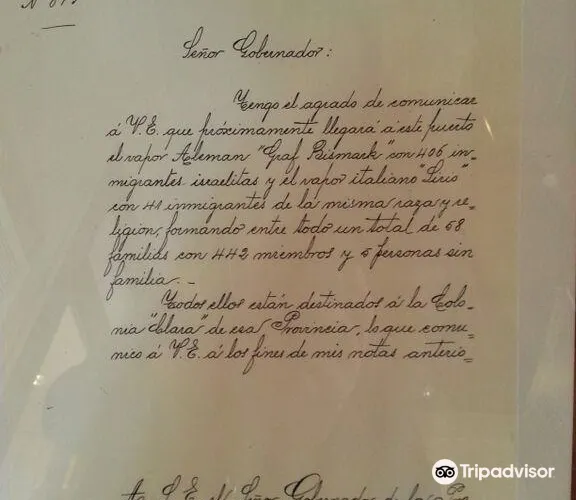 Señor Gobernador:
Tengo el agrado de comunicar
á V.E. que próximamente llegará á este puerto
el vapor Aleman "Graf Bismark" con 406 in=
migrantes israelitas y el vapor italiano "Sirio"
con 41 inmigrantes de la misma raza y re=
ligion, formando entre todo un total de 58
familias con 442 miembros y 5 personas sin
familia. –
Todos ellos están destinados á la Colo=
nia "Clara" de esa Provincia, lo que comu=
nico á V.E. á los fines de mis notas anterio=
A S.E. el Señor Gobernador de la
Tripadvisor